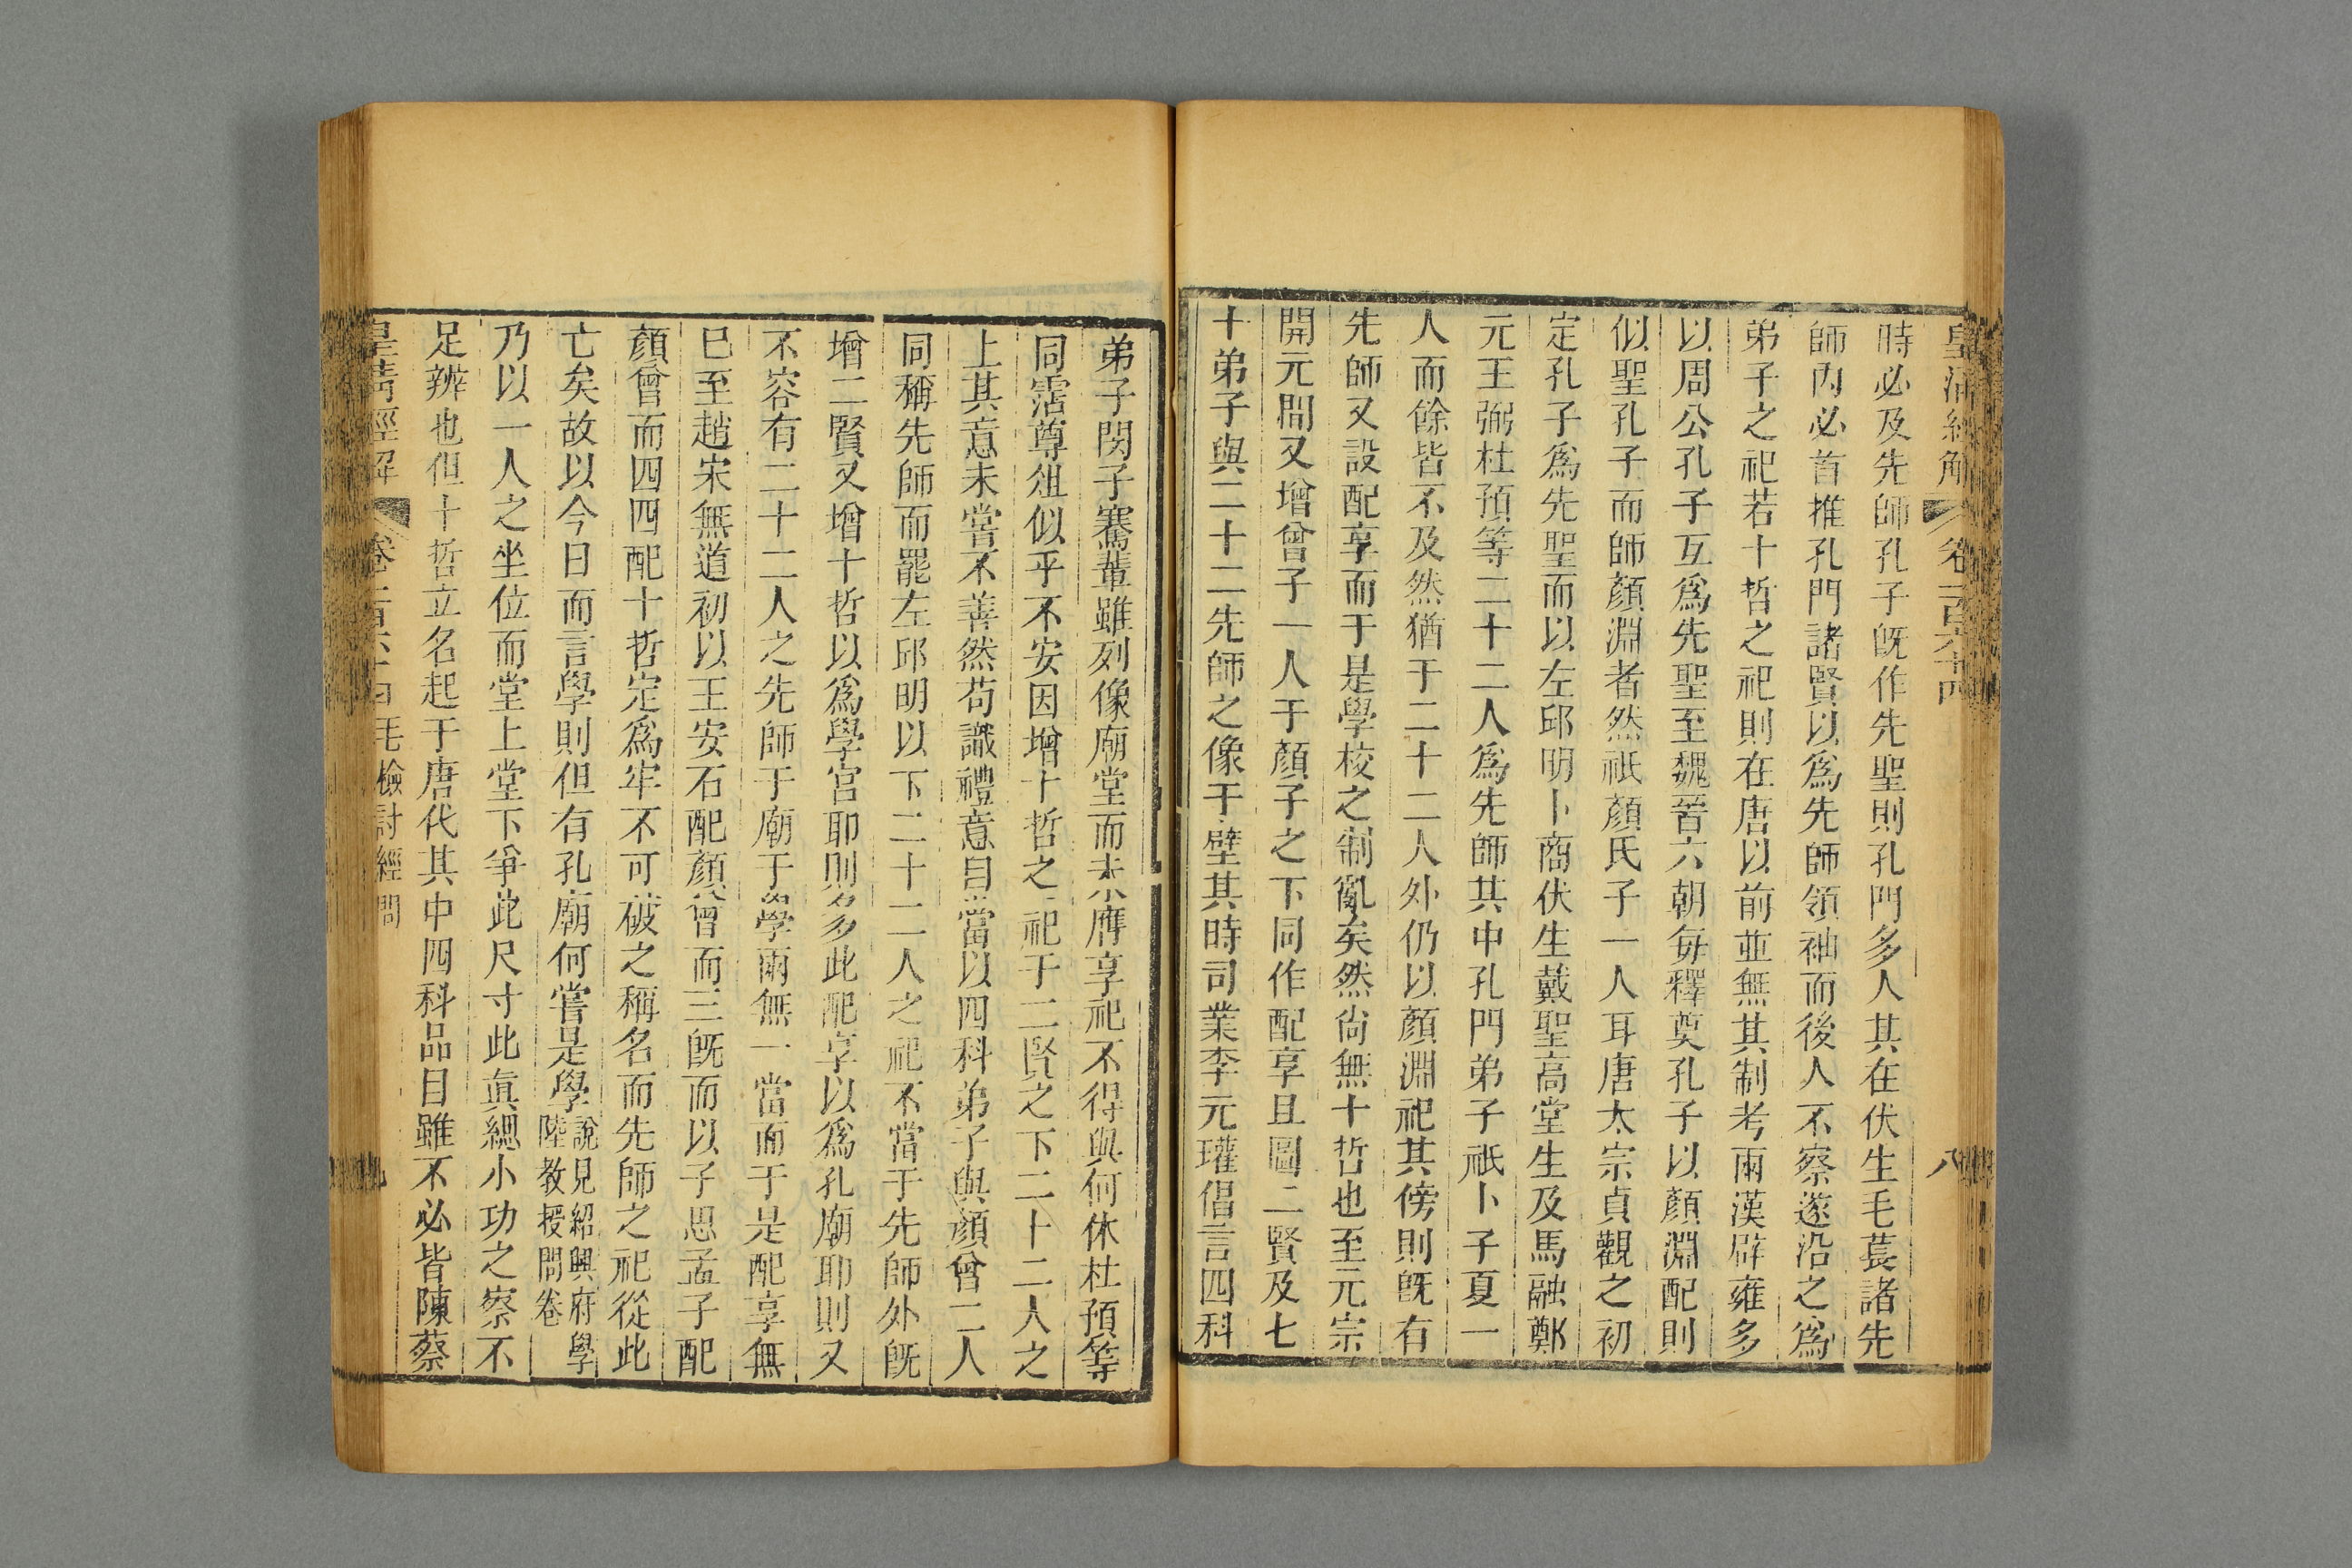 皇清經解 卷一百六十四 八
時必及先師孔子旣作先聖則孔門多人其在伏生毛萇諸先
師內必首推孔門諸賢以爲先師領袖而後人不察遂沿之爲
弟子之祀若十哲之祀則在唐以前並無其制考兩漢辟雍多
以周公孔子互爲先聖至魏晉六朝每釋奠孔子以顏淵配則
似聖孔子而師顏淵者然祇顏氏子一人耳唐太宗貞觀之初
定孔子爲先聖而以左邱明卜商伏生戴聖高堂生及馬融鄭
元王弼杜預等二十二人爲先師其中孔門弟子祇卜子夏一
人而餘皆不及然猶于二十二人外仍以顏淵祀其傍則旣有
先師又設配享而于是學校之制亂矣然尙無十哲也至元宗
開元間又增曾子一人于顏子之下同作配享且圖二賢及七
十弟子與二十二先師之像于壁其時司業李元瓘倡言四科
弟子閔子騫輩雖列像廟堂而未膺享祀不得與何休杜預等
同霑尊俎似乎不安因增十哲之祀于二賢之下二十二人之
上其意未嘗不善然苟識禮意自當以四科弟子與顏曾二人
同稱先師而罷左邱明以下二十二人之祀不當于先師外旣
增二賢又增十哲以爲學宮耶則多此配享以爲孔廟耶則又
不容有二十二人之先師于廟于學兩無一當而于是配享無
已至趙宋無道初以王安石配顏曾而三旣而以子思孟子配
顏曾而四四配十哲定爲牢不可破之稱名而先師之祀從此
亡矣故以今日而言學則但有孔廟何嘗是學說見紹興府學
陸敎授問卷
乃以一人之坐位而堂上堂下爭此尺寸此眞總小功之察不
足辨也但十哲立名起于唐代其中四科品目雖不必皆陳蔡
皇淸經解 卷一百六十四 毛檢討經問 九